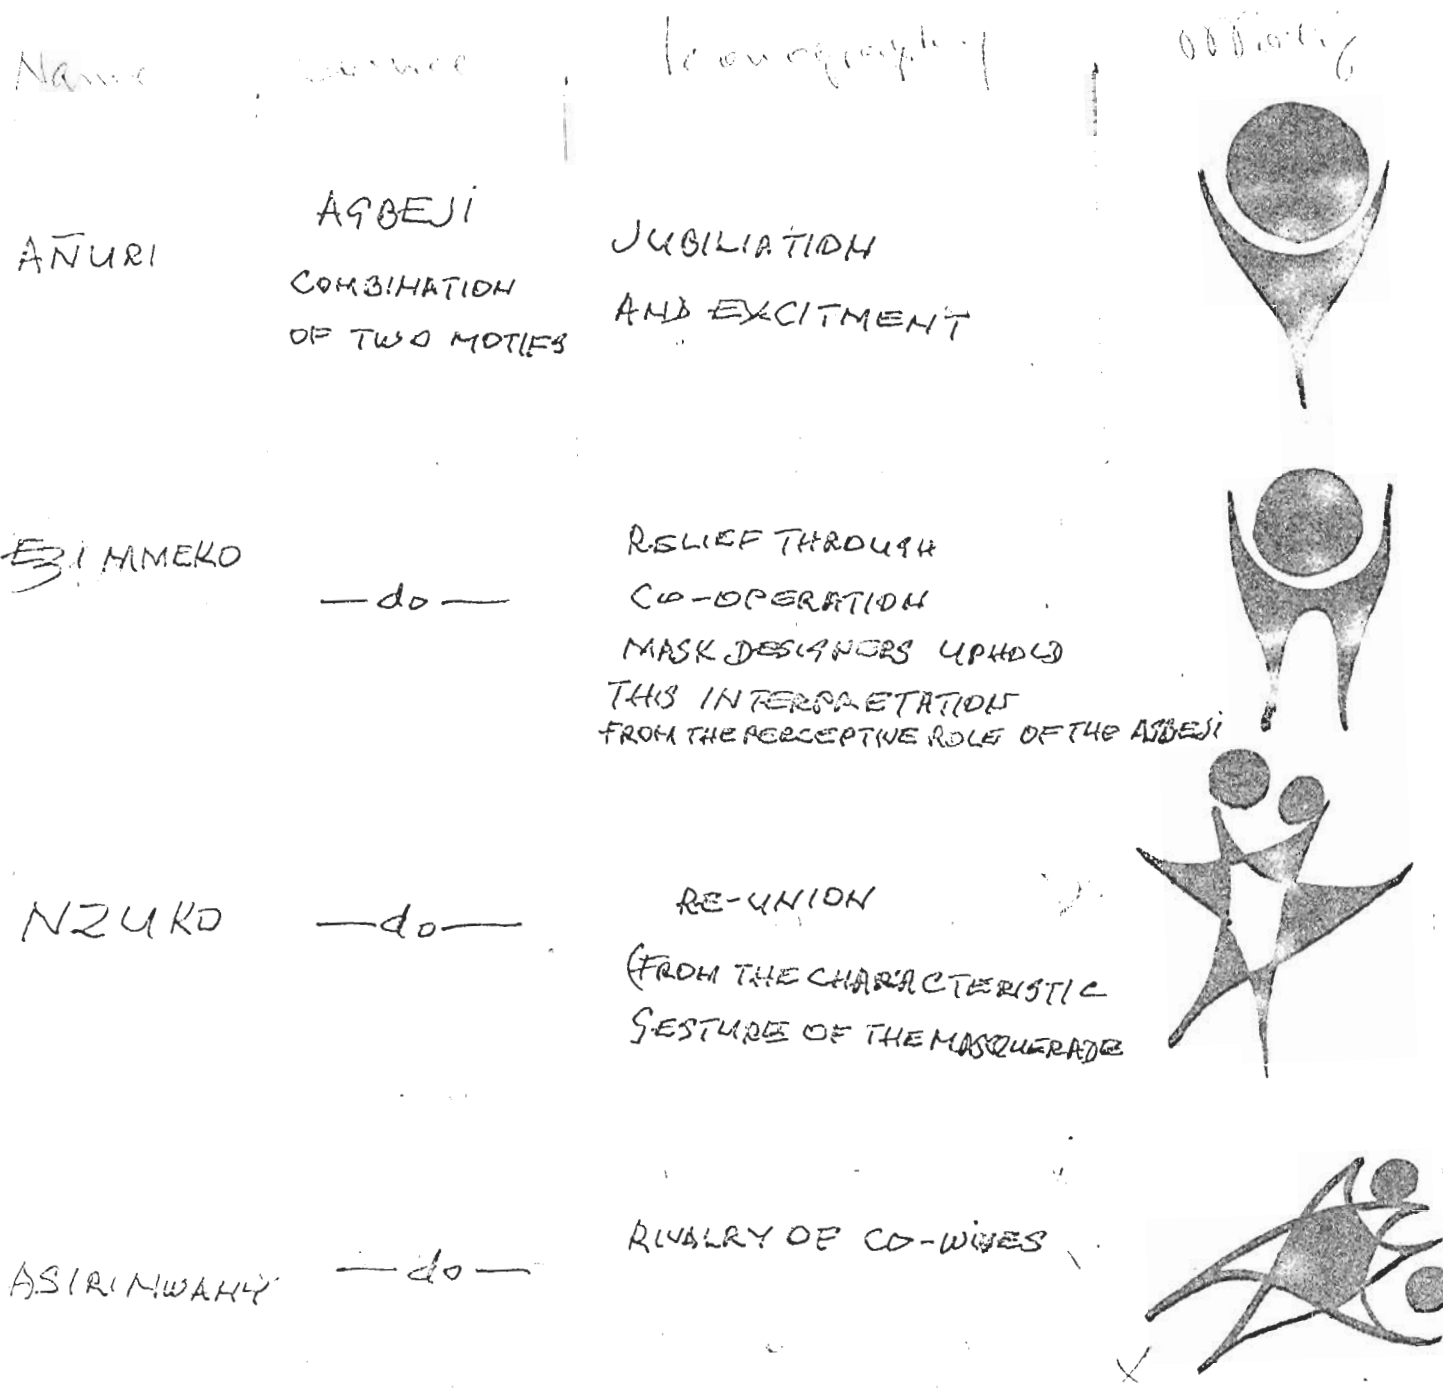 Name Source Iconography
AÑURI
AGBEJI
COMBINATION
OF TWO MOTIFS
JUBILIATION
AND EXCITMENT
EZI MMEKO
—do—
RELIEF THROUGH
CO-OPERATION
MASK DESIGNERS UPHOLD
THIS INTERPRETATION
FROM THE PERCEPTIVE ROLE OF THE AGBEJI
NZUKO
—do—
RE-UNION
(FROM THE CHARACTERISTIC
GESTURE OF THE MASQUERADE
ASIRI NWANY
—do—
RIVALRY OF CO-WIVES